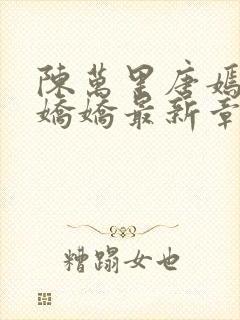 陳萬里唐嫣
嬌嬌最新章
糟蹋女也